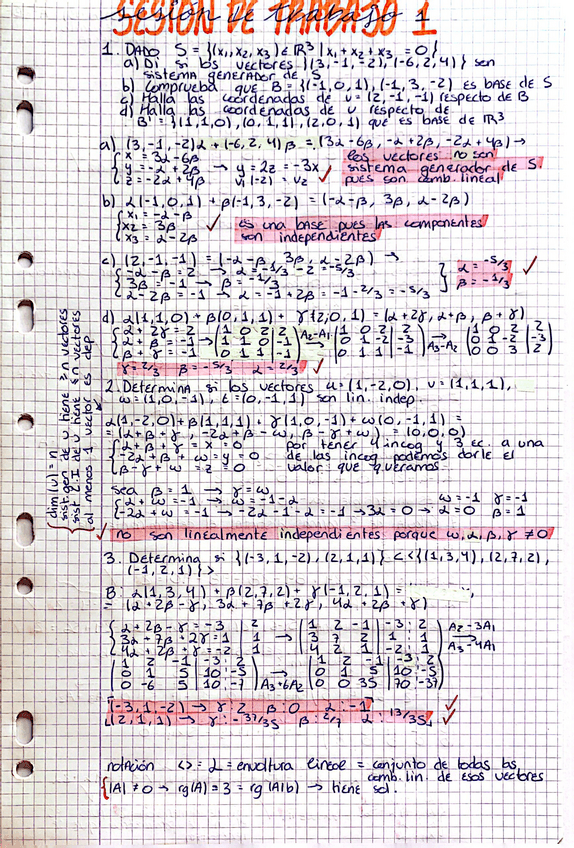 SESIÓN DE TRABAJO 1
1. DADO S = {(x₁, x₂, x₃) ∈ ℝ³ | x₁ + x₂ + x₃ = 0}
a) Di si los vectores {(3,-1,-2), (-6,2,4)} son
sistema generador de S
b) Comprueba que B = {(-1,0,1), (-1,3,-2)} es base de S
c) Halla las coordenadas de u = (2,-1,-1) respecto de B
d) Halla las coordenadas de u respecto de
B' = {(1,1,0), (0,1,1), (2,0,1)} que es base de ℝ³
a) (3,-1,-2)α + (-6,2,4)β = (3α-6β, -α+2β, -2α+4β) →
{x = 3α-6β
y = -α+2β → y = 2z = -3x
z = -2α+4β
los vectores no son
sistema generador de S.
pues son comb. lineal
b) α(-1,0,1) + β(-1,3,-2) = (-α-β, 3β, α-2β)
{x₁ = -α-β
x₂ = 3β
x₃ = α-2β
es una base pues las componentes
son independientes
c) (2,-1,-1) = (-α-β, 3β, α-2β) →
{-α-β = 2 → α = -1/3 - 2 = -5/3
3β = -1 → β = -1/3
α-2β = -1 → α = -1+2β = -1-2/3 = -5/3
α = -5/3
β = -1/3
d) α(1,1,0) + β(0,1,1) + γ(2,0,1) = (α+2γ, α+β, β+γ)
{α+2γ = 2
α+β = -1 → (1 0 2|2; 1 1 0|-1; 0 1 1|-1) A₂-A₁ → (1 0 2|2; 0 1 -2|-3; 0 1 1|-1) → A₃-A₂ (1 0 2|2; 0 1 -2|-3; 0 0 3|2)
β+γ = -1
γ = 2/3 β = -5/3 α = 2/3
2. Determina si los vectores u = (1,-2,0), v = (1,1,1),
w = (1,0,-1), t = (0,-1,1) son lin. indep.
α(1,-2,0) + β(1,1,1) + γ(1,0,-1) + ω(0,-1,1) =
= (α+β+γ, -2α+β-ω, β-γ+ω) = (0,0,0)
{α+β+γ = x = 0
-2α+β+ω = y = 0
β-γ+ω = z = 0
por tener 4 incog y 3 ec. a una
de las incog podemos darle el
valor que queramos
sea β = 1 → γ = ω
{α+ω = -1 → ω = -1-α
-2α+ω = -1 → -2α-1-α = -1 → 3α = 0 → α = 0
ω = -1 γ = -1
β = 1
no son linealmente independientes porque ω, α, β, γ ≠ 0
dim(V) = n
sist gen de V tiene ≥ n vectores
sist L.I. de V tiene ≤ n vectores
al menos 1 vector es dep
3. Determina si {(-3,1,-2), (2,1,1)} ⊂ <{(1,3,4), (2,7,2),
(-1,2,1)}>
B: α(1,3,4) + β(2,7,2) + γ(-1,2,1) =
= (α+2β-γ, 3α+7β+2γ, 4α+2β+γ)
{α+2β-γ = -3 | 2
3α+7β+2γ = 1 | 1 → (1 2 -1|-3|2; 3 7 2|1|1; 4 2 1|-2|1) A₂-3A₁ A₃-4A₁ →
4α+2β+γ = -2 | 1
(1 2 -1|-3|2; 0 1 5|10|-5; 0 -6 5|10|-7) A₃+6A₂ → (1 2 -1|-3|2; 0 1 5|10|-5; 0 0 35|70|-37)
(-3,1,-2) → γ: 2 β: 0 α: -1
(2,1,1) → γ: -37/35 β: 2/7 α: 13/35
notación <> = L = envoltura lineal = conjunto de todas las
comb. lin. de esos vectores
{|A| ≠ 0 → rg(A) = 3 = rg(A|b) → tiene sol.